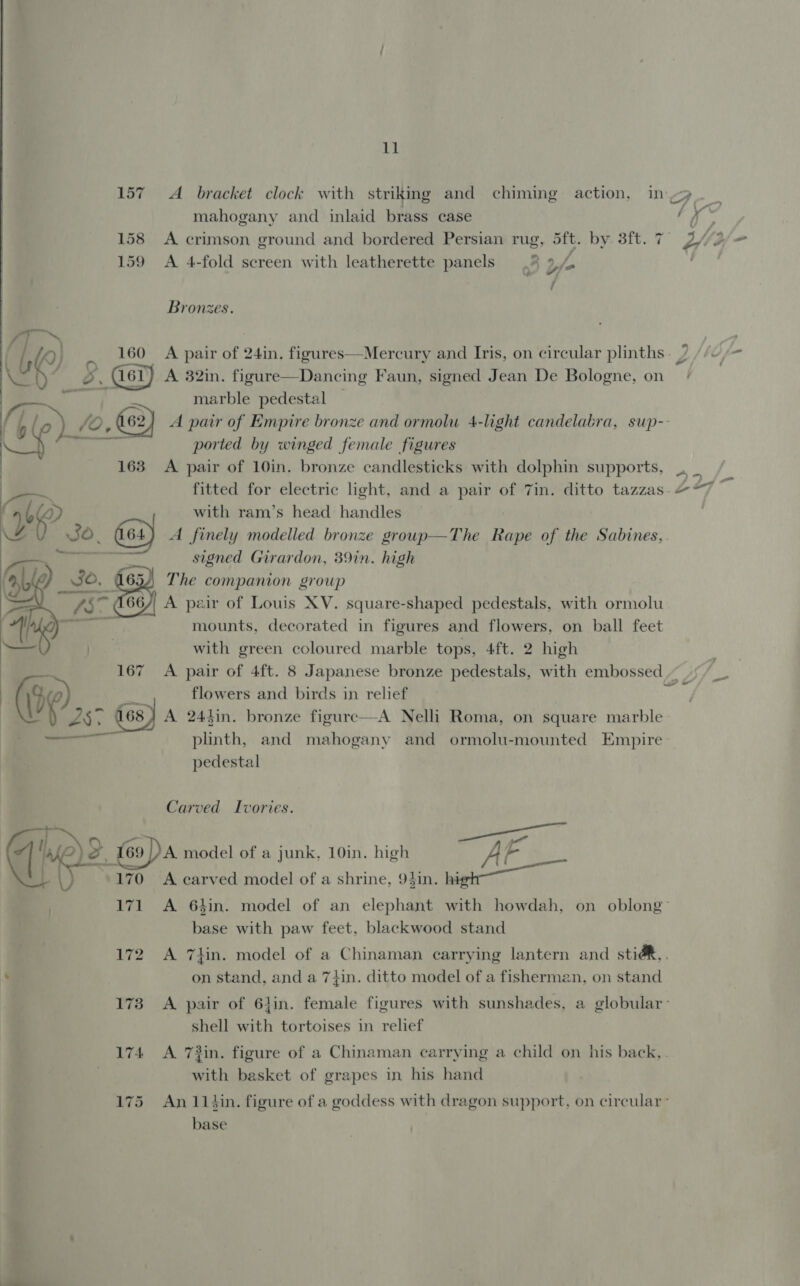 11
157 A bracket clock with striking and chiming action, in
mahogany and inlaid brass case
158 A crimson ground and bordered Persian rug, 5ft. by 3ft. 7
159 A 4-fold screen with leatherette panels
Bronzes.
160 A pair of 24in. figures—Mercury and Iris, on circular plinths
161 A 32in. figure—Dancing Faun, signed Jean De Bologne, on
marble pedestal
10. 162 A pair of Empire bronze and ormolu 4-light candelabra, sup-
ported by winged female figures
163 A pair of 10in. bronze candlesticks with dolphin supports,
fitted for electric light, and a pair of 7in. ditto tazzas
with ram's head handles
30. 164 A finely modelled bronze group—The Rape of the Sabines,
signed Girardon, 39in. high
30. 165 The companion group
15 166 A pair of Louis XV. square-shaped pedestals, with ormolu
mounts, decorated in figures and flowers, on ball feet
with green coloured marble tops, 4ft. 2 high
167 A pair of 4ft. 8 Japanese bronze pedestals, with embossed
flowers and birds in relief
25 168 A 24½in. bronze figure—A Nelli Roma, on square marble
plinth, and mahogany and ormolu-mounted Empire
pedestal
Carved Ivories.
169 A model of a junk, 10in. high
170 A carved model of a shrine, 9½in. high
171 A 6½in. model of an elephant with howdah, on oblong
base with paw feet, blackwood stand
172 A 7¼in. model of a Chinaman carrying lantern and stick,
on stand, and a 7¼in. ditto model of a fisherman, on stand
173 A pair of 6¼in. female figures with sunshades, a globular
shell with tortoises in relief
174 A 7¾in. figure of a Chinaman carrying a child on his back,
with basket of grapes in his hand
175 An 11½in. figure of a goddess with dragon support, on circular
base